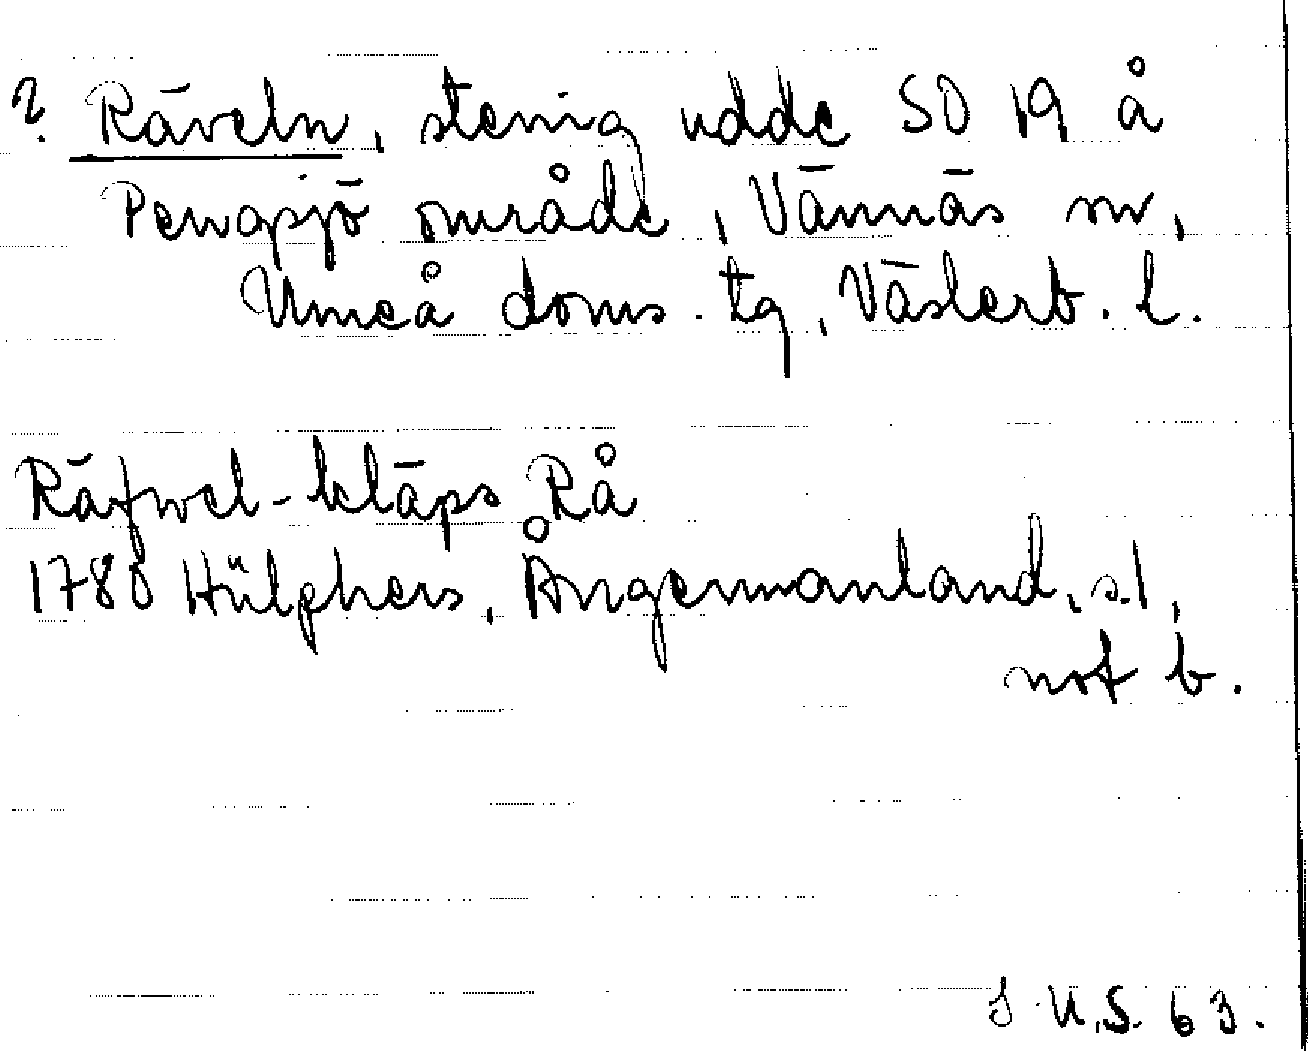 ? Räveln, stenig udde SO 19 å
Pengsjö område, Vännäs sn,
Umeå doms. tg, Västerb. l.
Räfwel-kläps Rå
1780 Hülphers, Ångermanland, s.1,
not b.
S.U.S. 63.